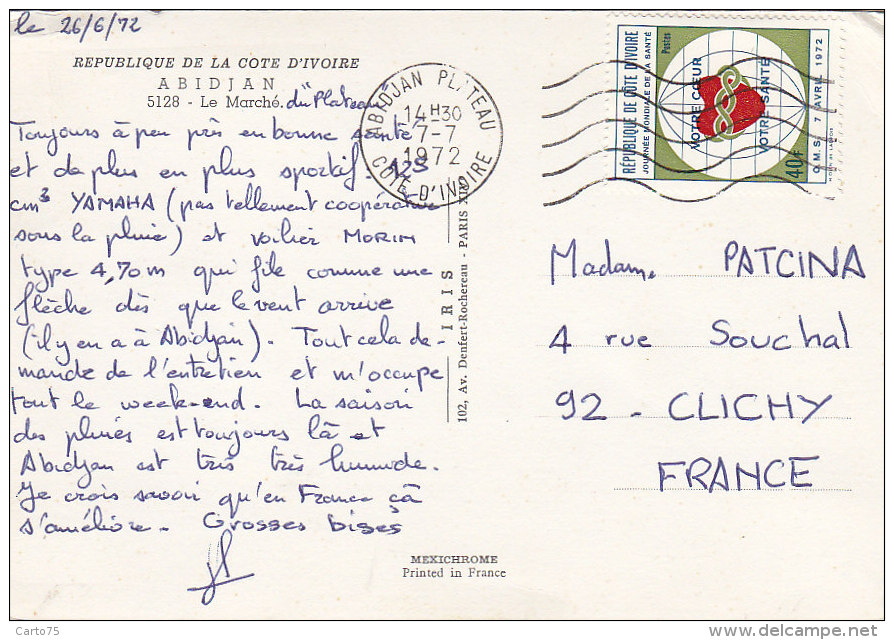 le 26/6/72
REPUBLIQUE DE LA COTE D'IVOIRE
ABIDJAN
5128 - Le Marché. du "Plateau"
Toujours à peu près en bonne santé
et de plus en plus sportif. 125
cm3 YAMAHA (pas tellement coopérative
sous la pluie) et voilier MORIN
type 4,70m qui file comme une
flèche dès que le vent arrive
(il y en a à Abidjan). Tout cela de-
mande de l'entretien et m'occupe
tout le week-end. La saison
des pluies est toujours là et
Abidjan est très très humide.
Je crois savoir qu'en France çà
s'améliore. Grosses bises
ABIDJAN PLATEAU
14H30
7-7
1972
COTE D'IVOIRE
IRIS
102, Av. Denfert-Rochereau - PARIS XIV
REPUBLIQUE DE CÔTE D'IVOIRE
JOURNÉE MONDIALE DE LA SANTÉ
Postes
VOTRE CŒUR
VOTRE SANTÉ
40F
O.M.S. 7 AVRIL 1972
Madame PATCINA
4 rue Souchal
92 - CLICHY
FRANCE
MEXICHROME
Printed in France
Carto75
www.delcampe.net